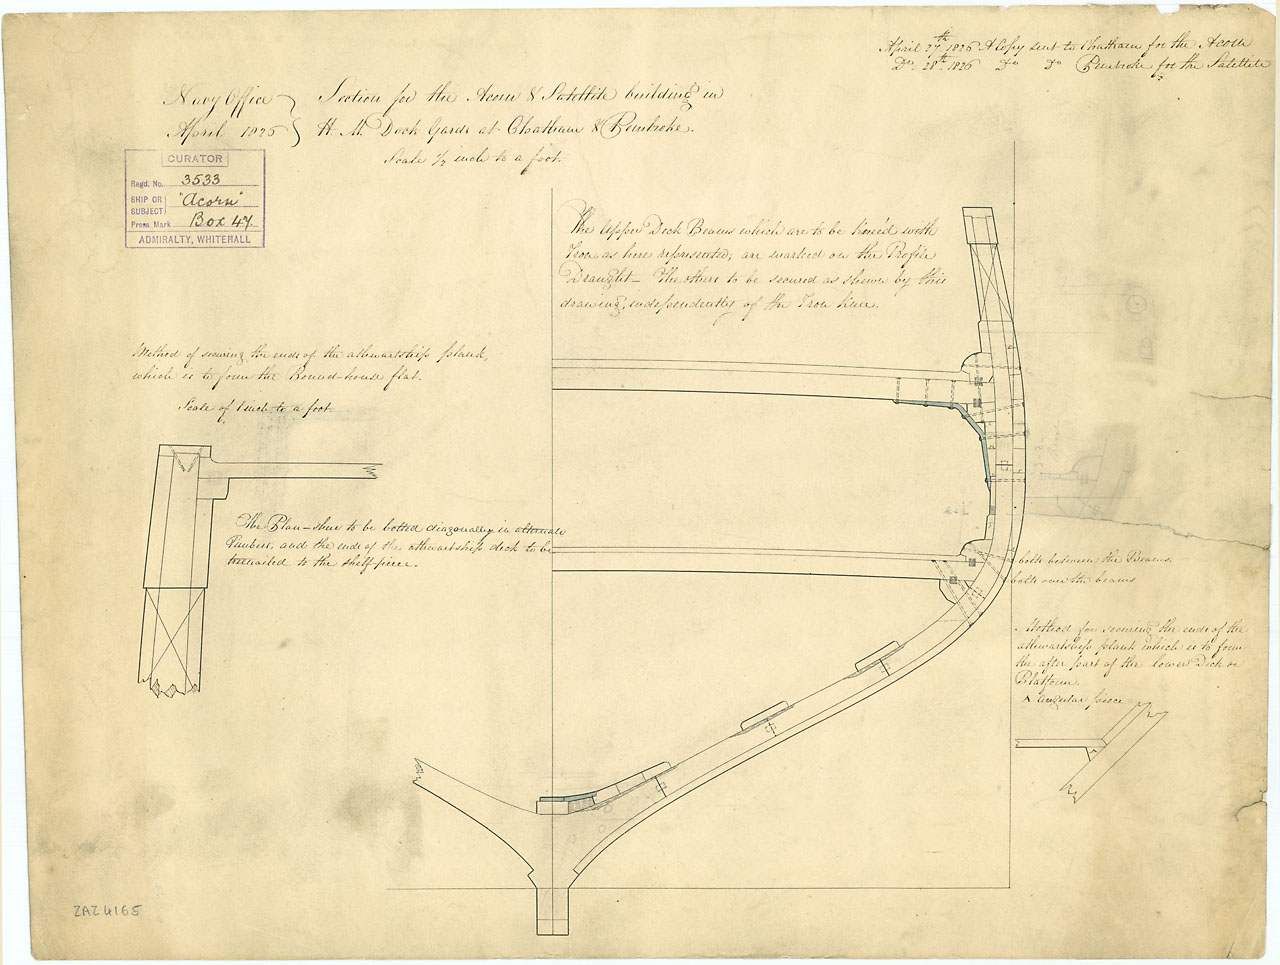 April 27th 1826 A Copy sent to Chatham for the Acorn
Do 28th 1826 Do Do Pembroke for the Satellite
Navy Office
April 1826
Section for the Acorn & Satellite building in
H. M. Dock Yards at Chatham & Pembroke.
Scale 1/2 inch to a foot.
CURATOR
Regd. No. 3533
SHIP OR SUBJECT "Acorn"
Press Mark Box 47
ADMIRALTY, WHITEHALL
The Upper Deck Beams which are to be kneed with
Iron as here represented, are marked on the Profile
Draught – The others to be secured as shewn by this
drawing, independently of the Iron knee.
Method of securing the ends of the athwartship plank,
which is to form the Round-house flat.
Scale of 1 inch to a foot
The Plan-sheer to be bolted diagonally in alternate
Timbers, and the ends of the athwartship deck to be
treenailed to the shelf piece.
bolts between the Beams
bolts over the beams
Method for securing the ends of the
athwartship plank which is to form
the after part of the lower Deck or
Platform.
A angular piece
A
ZAZ4165